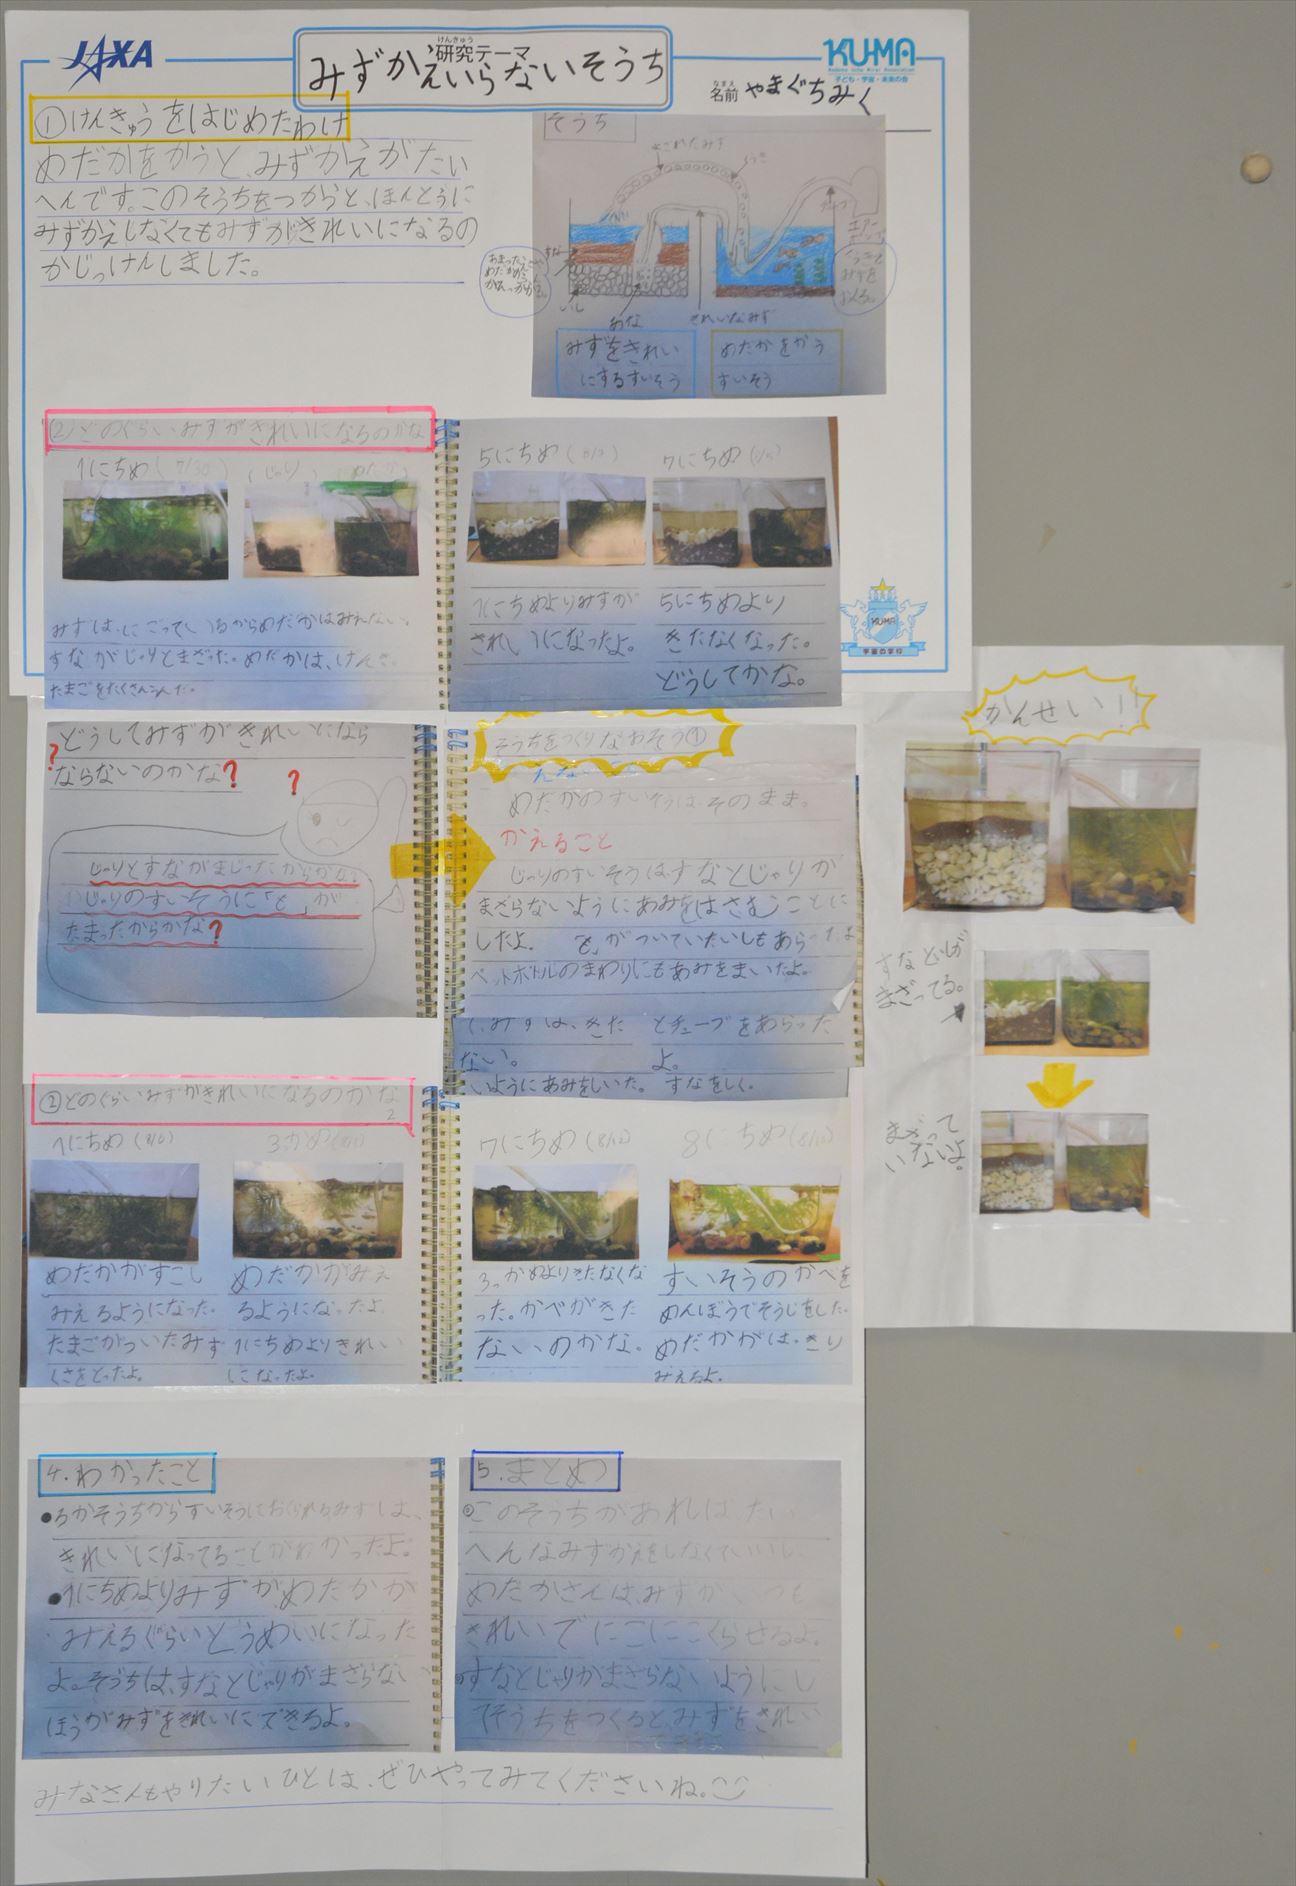 JAXA
けんきゅう
研究テーマ
みずかえいらないそうち
KU-MA
子ども・宇宙・未来の会
なまえ
名前 やまぐちみく
①けんきゅうをはじめたわけ
めだかをかうと、みずかえがたい
へんです。このそうちをつかうと、ほんとうに
みずかえしなくてもみずがきれいになるの
かじっけんしました。
そうち
すな
いし
あな
きれいなみず
みずをきれい
にするすいそう
めだかをかう
すいそう
②どのぐらいみずがきれいになるのかな
1にちめ (7/30)
(じゃり)
みずは、にごっているからめだかはみえない。
すながじゃりとまざった。めだかは、げんき。
たまごをたくさんうんだ。
5にちめ
7にちめ
1にちめよりみずが
きれいになったよ。
5にちめより
きたなくなった。
どうしてかな。
KUMA
宇宙の学校
どうしてみずがきれいになら
ならないのかな?
じゃりとすながまじったからかな?
じゃりのすいそうに「と」が
たまったからかな?
そうちをつくりなおそう①
めだかのすいそうは、そのまま。
かえること
じゃりのすいそうは、すなとじゃりが
まざらないようにあみをはさむことに
したよ。 「と」がついていたいしもあらったよ
ペットボトルのまわりにもあみをまいたよ。
とチューブをあらった
ない。 よ。
いようにあみをしいた。 すなをしく。
かんせい!!
すなといしが
まざってる。
まざって
いないよ。
②どのぐらいみずがきれいになるのかな
2
1にちめ
めだかがすこし
みえるようになった。
たまごがついたみず
くさをとったよ。
めだかがみえ
るようになったよ。
1にちめよりきれい
になったよ。
7にちめ
3っかめよりきたなくな
った。かべがきた
ないのかな。
8にちめ
すいそうのかべを
めんぼうでそうじをした。
めだかがは、きり
みえるよ。
4.わかったこと
●ろかそうちからすいそうにおくられるみずは、
きれいになってることがわかったよ。
●1にちめよりみずが、めだかが
みえるぐらいとうめいになった
よ。そうちは、すなとじゃりがまざらない
ほうがみずをきれいにできるよ。
5.まとめ
このそうちがあればたい
へんなみずかえをしなくていいし、
めだかさんは、みずがいつも
きれいでにこにこくらせるよ。
すなとじゃりがまざらないようにし
てそうちをつくると、みずをきれい
にできるよ
みなさんもやりたいひとは、ぜひやってみてくださいね。